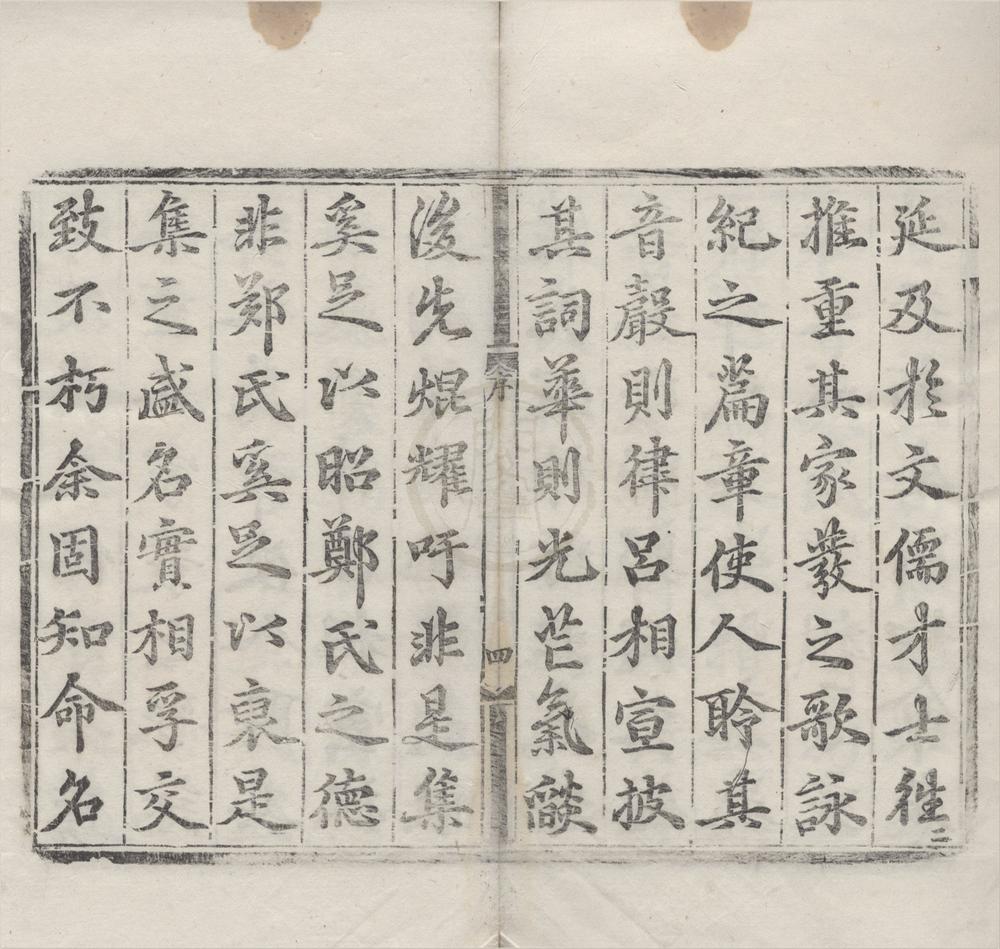 延及於文儒才士徃二
推重其家發之歌詠
紀之篇章使人聆其
音聲則律呂相宣披
其詞華則光芒氣燄
序
四
後先焜耀吁非是集
奚足以昭鄭氏之德
非鄭氏奚足以裒是
集之盛名實相孚交
致不朽余固知命名